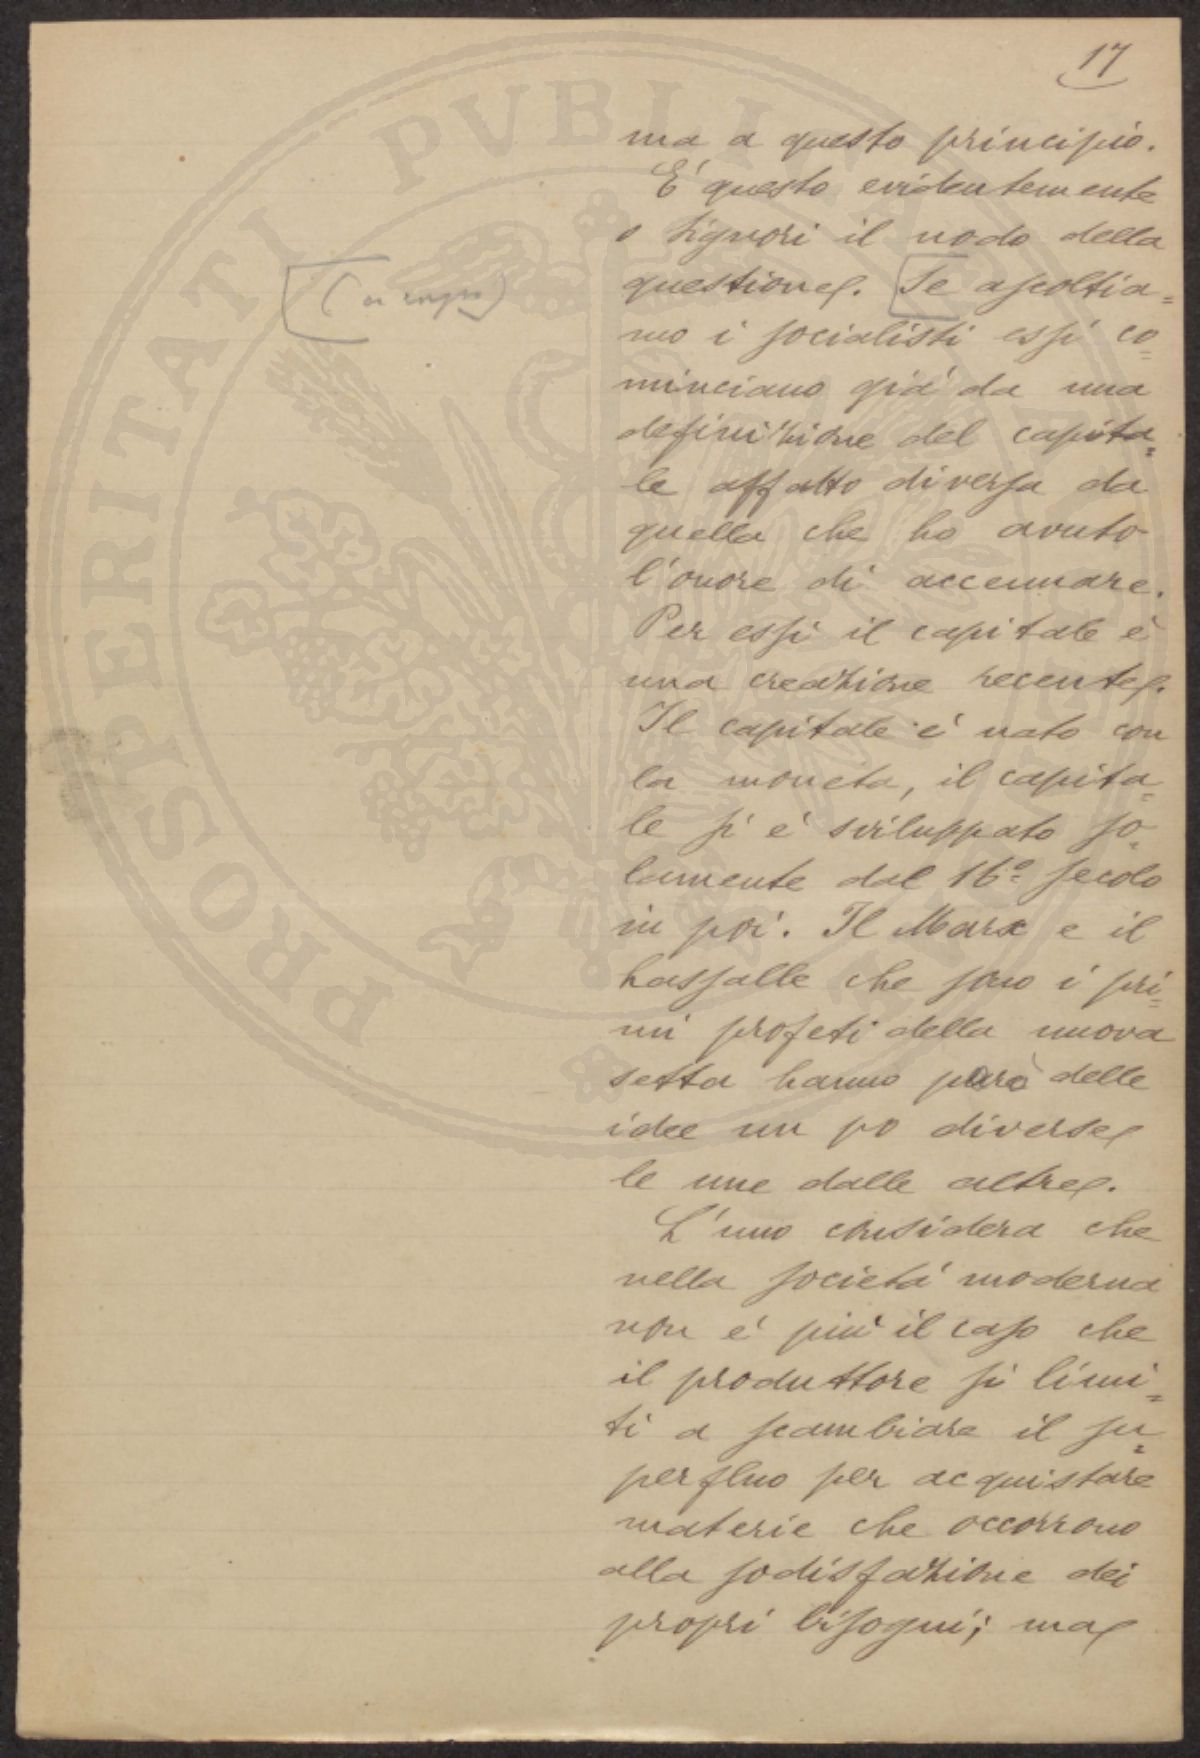 17
ma a questo principio.
E' questo evidentemente
o Signori il nodo della
questione. Se ascoltia=
mo i socialisti essi co=
minciano già da una
definizione del capita=
le affatto diversa da
quella che ho avuto
l'onore di accennare.
Per essi il capitale è
una creazione recente.
Il capitale è nato con
la moneta, il capita=
le si è sviluppato so=
lamente dal 16º secolo
in poi. Il Marx e il
Lassalle che sono i pri=
mi profeti della nuova
setta hanno però delle
idee un po diverse
le une dalle altre.
L'uno considera che
nella società moderna
non è più il caso che
il produttore si limi=
ti a scambiare il su=
perfluo per acquistare
materie che occorrono
alla sodisfazione dei
propri bisogni; ma
PROSPERITATI PUBLICAE